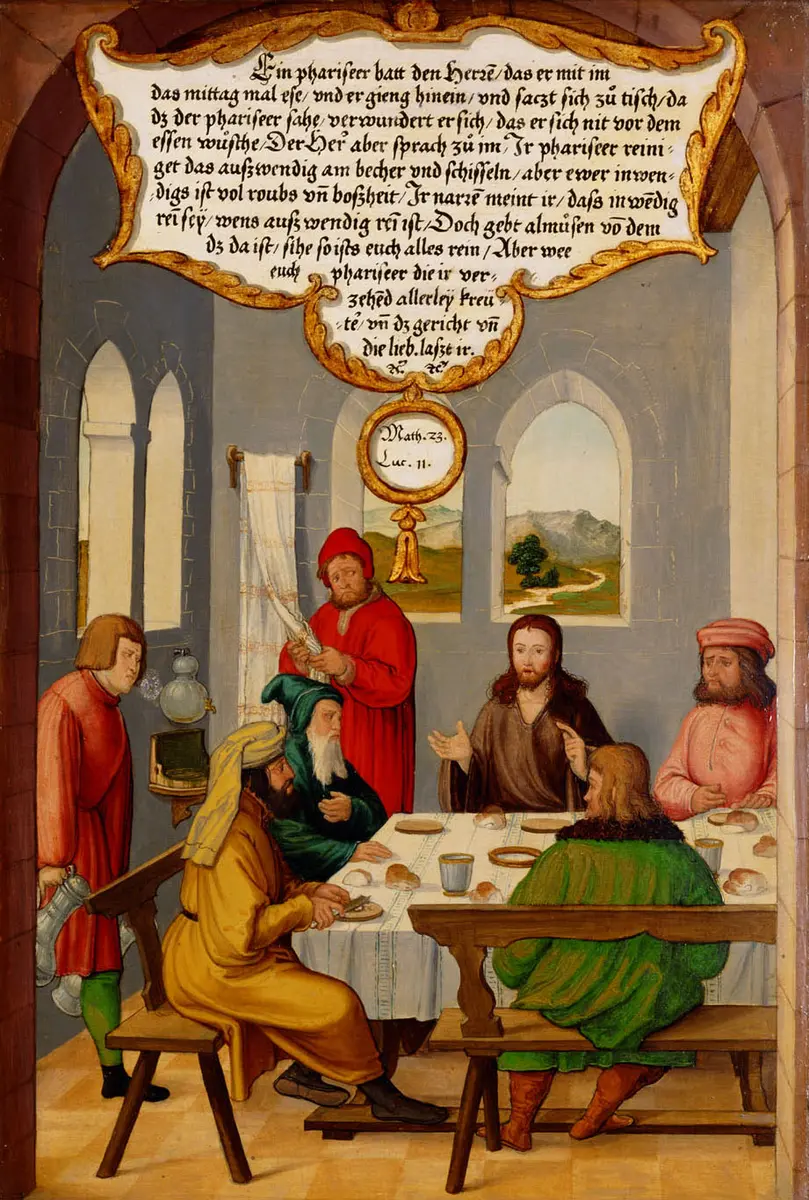 Ein phariseer batt den Herrē/ das er mit im
das mittag mal ese/ vnd er gieng hinein/ vnd saczt sich zů tisch/ da
dz der phariseer sahe/ verwundert er sich/ das er sich nit vor dem
essen wůsche/ Der Her͛ aber sprach zů im/ Ir phariseer reini-
get das auszwendig am becher vnd schisseln/ aber ewer inwen-
digs ist vol roubs vn̄ boszheit/ Ir narrē meint ir/ dass inwēdig
rei͂ sey/ wens ausz wendig rei͂ ist/ Doch gebt almůsen vō dem
dz da ist/ sihe so ists euch alles rein/ Aber wee
euch phariseer die ir ver-
zehēd allerley kreu-
te͛/ vn̄ dz gericht vn̄
die lieb. laszt ir.
ꝛc. ꝛc.
Math. 23.
Luc. 11.